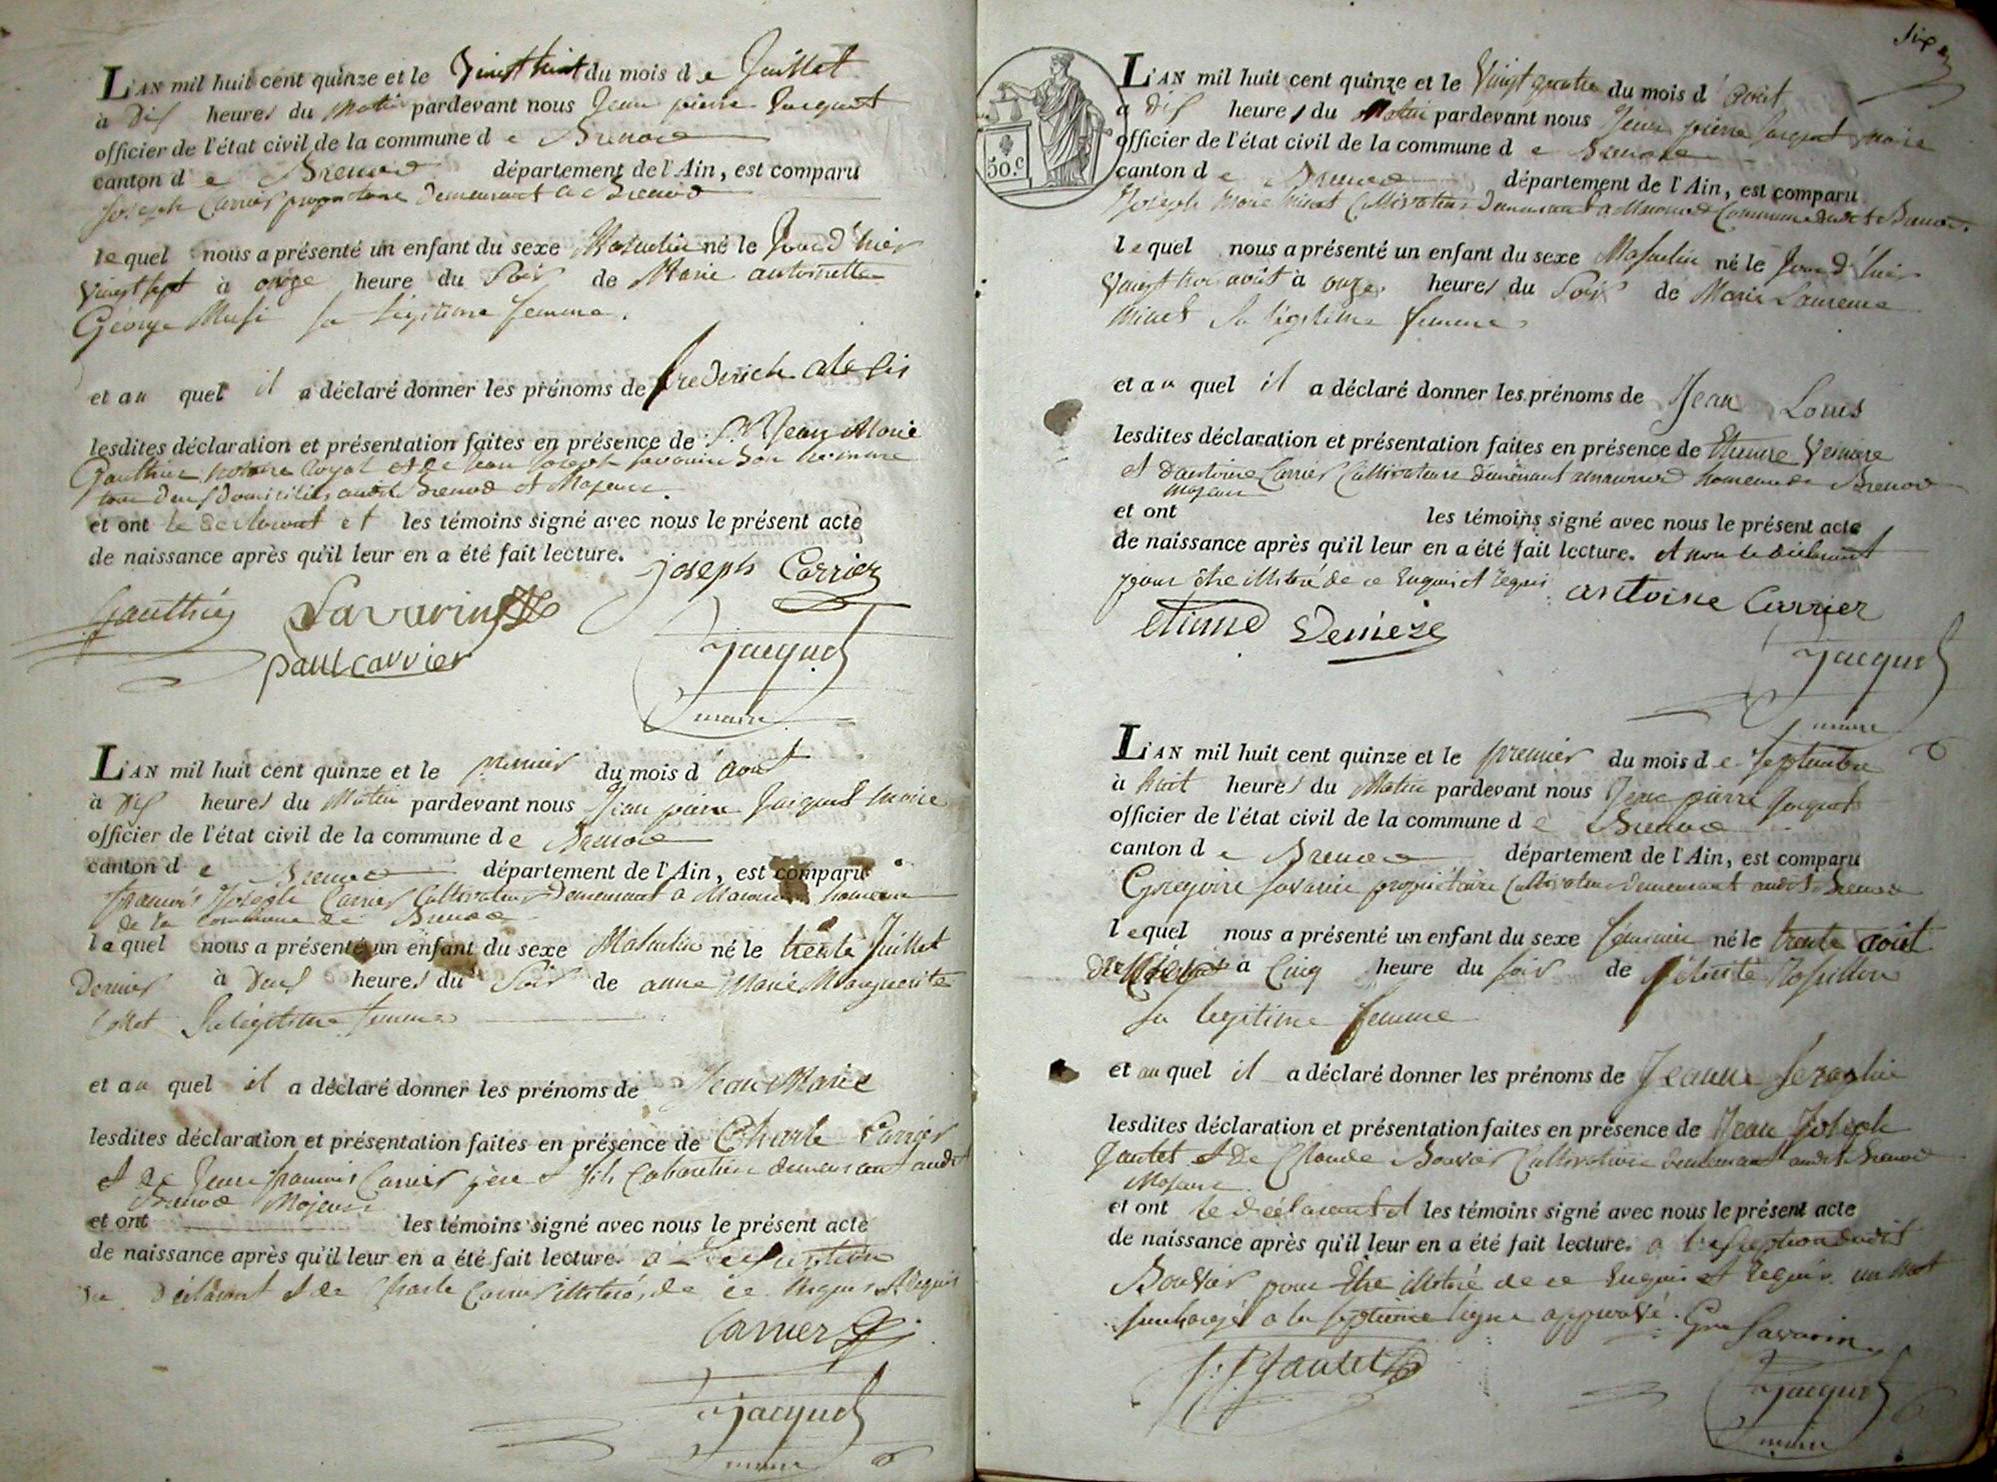 L'AN mil huit cent quinze et le Vingt huit du mois d e Juillet
à Dix heures du Matin pardevant nous Jean pierre Jacquet
officier de l'état civil de la commune d e Brenod
canton d e Brenod département de l'Ain, est comparu
Joseph Carrier propriétaire Demeurant a Brenod
lequel nous a présenté un enfant du sexe Masculin né le Jour d'hier
Vingt sept à onze heure du Soir de Marie antoinette
George Musi sa légitime femme.
et au quel il a déclaré donner les prénoms de frederich alexis
lesdites déclaration et présentation faites en présence de Sr. Jean Marie
Gauthier notaire Royal et de Jean Joseph Savarin
tous deux Domiciliés audit Brenod et Majeurs.
et ont le déclarant et les témoins signé avec nous le présent acte
de naissance après qu'il leur en a été fait lecture.
joseph Carrier
Gauthier Savarin
paul carrier
Jacquet
maire
L'AN mil huit cent quinze et le premier du mois d'aout
à Dix heures du Matin pardevant nous Jean pierre Jacquet maire
officier de l'état civil de la commune d e Brenod
canton d e Brenod département de l'Ain, est comparu
francois Joseph Carrier Cultivateur Demeurant a hameau
de la commune de Brenod
lequel nous a présenté un enfant du sexe Masculin né le trente Juillet
Dernier à Deux heures du Soir de anne Marie Marguerite
Collet Sa légitime femme
et au quel il a déclaré donner les prénoms de Jean Marie
lesdites déclaration et présentation faites en présence de Charle Carrier
et de Jean francois Carrier père et fils demeurant audit
Brenod Majeurs
et ont les témoins signé avec nous le présent acte
de naissance après qu'il leur en a été fait lecture. a L'exception
du Déclarant et de Charle Carrier illitéré, de ce Enquis et Requis
Carrier
Jacquet
maire
six
50.c
L'AN mil huit cent quinze et le Vingt quatre du mois d'aout
à Dix heures du Matin pardevant nous Jean pierre Jacquet maire
officier de l'état civil de la commune d e Brenod
canton d e Brenod département de l'Ain, est comparu
Joseph Marie Minet Cultivateur Demeurant a Commune dudit Brenod.
lequel nous a présenté un enfant du sexe Masculin né le Jour d'hier
Vingt trois aout à onze heures du Soir de Marie Laurence
Minet Sa légitime femme
et au quel il a déclaré donner les prénoms de Jean Louis
lesdites déclaration et présentation faites en présence de Etienne
et d'antoine Carrier Cultivateurs demeurant hameau de Brenod
Majeurs
et ont les témoins signé avec nous le présent acte
de naissance après qu'il leur en a été fait lecture. et non le déclarant
pour être illitéré de ce Enquis et Requis antoine Carrier
etienne
Jacquet
maire
L'AN mil huit cent quinze et le premier du mois d e Septembre
à huit heures du Matin pardevant nous Jean pierre Jacquet
officier de l'état civil de la commune d e Brenod
canton d e Brenod département de l'Ain, est comparu
Gregoire Savarin propriétaire Cultivateur Demeurant audit Brenod
lequel nous a présenté un enfant du sexe feminin né le trente aout
à Cinq heure du soir de félicité
sa legitime femme
et au quel il a déclaré donner les prénoms de Jeanne Séraphie
lesdites déclaration et présentation faites en présence de Jean Joseph
Jantet et De Claude Bouvier Cultivateurs demeurant audit Brenod
Majeurs
et ont le déclarant et les témoins signé avec nous le présent acte
de naissance après qu'il leur en a été fait lecture. a l'exception dudit
Bouvier pour être illitéré de ce Enquis et Requis. un mot
surchargé a la septieme ligne approuvé. Gre Savarin
J. J. Jantet
Jacquet
maire